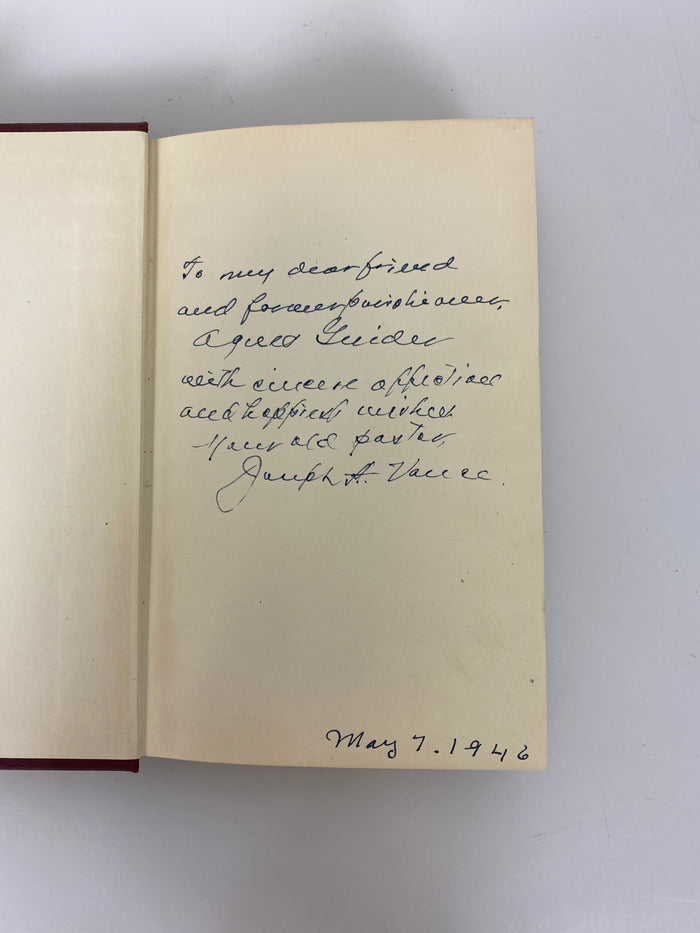 To my dear friend
and former parishioner,
Agnes
with sincere affection
and happiest wishes
Your old pastor,
Joseph A. Vance.
May 7. 1946